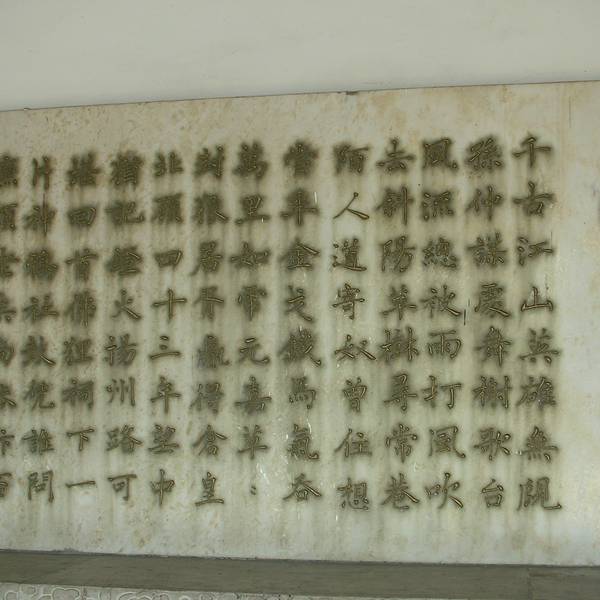 千古江山英雄無覓
孫仲謀處舞榭歌台
風流總被雨打風吹
去斜陽草樹尋常巷
陌人道寄奴曾住想
當年金戈鐵馬氣吞
萬里如虎元嘉草々
封狼居胥贏得倉皇
北顧四十三年望中
猶記烽火揚州路可
堪回首佛狸祠下一
片神鴉社鼓憑誰問